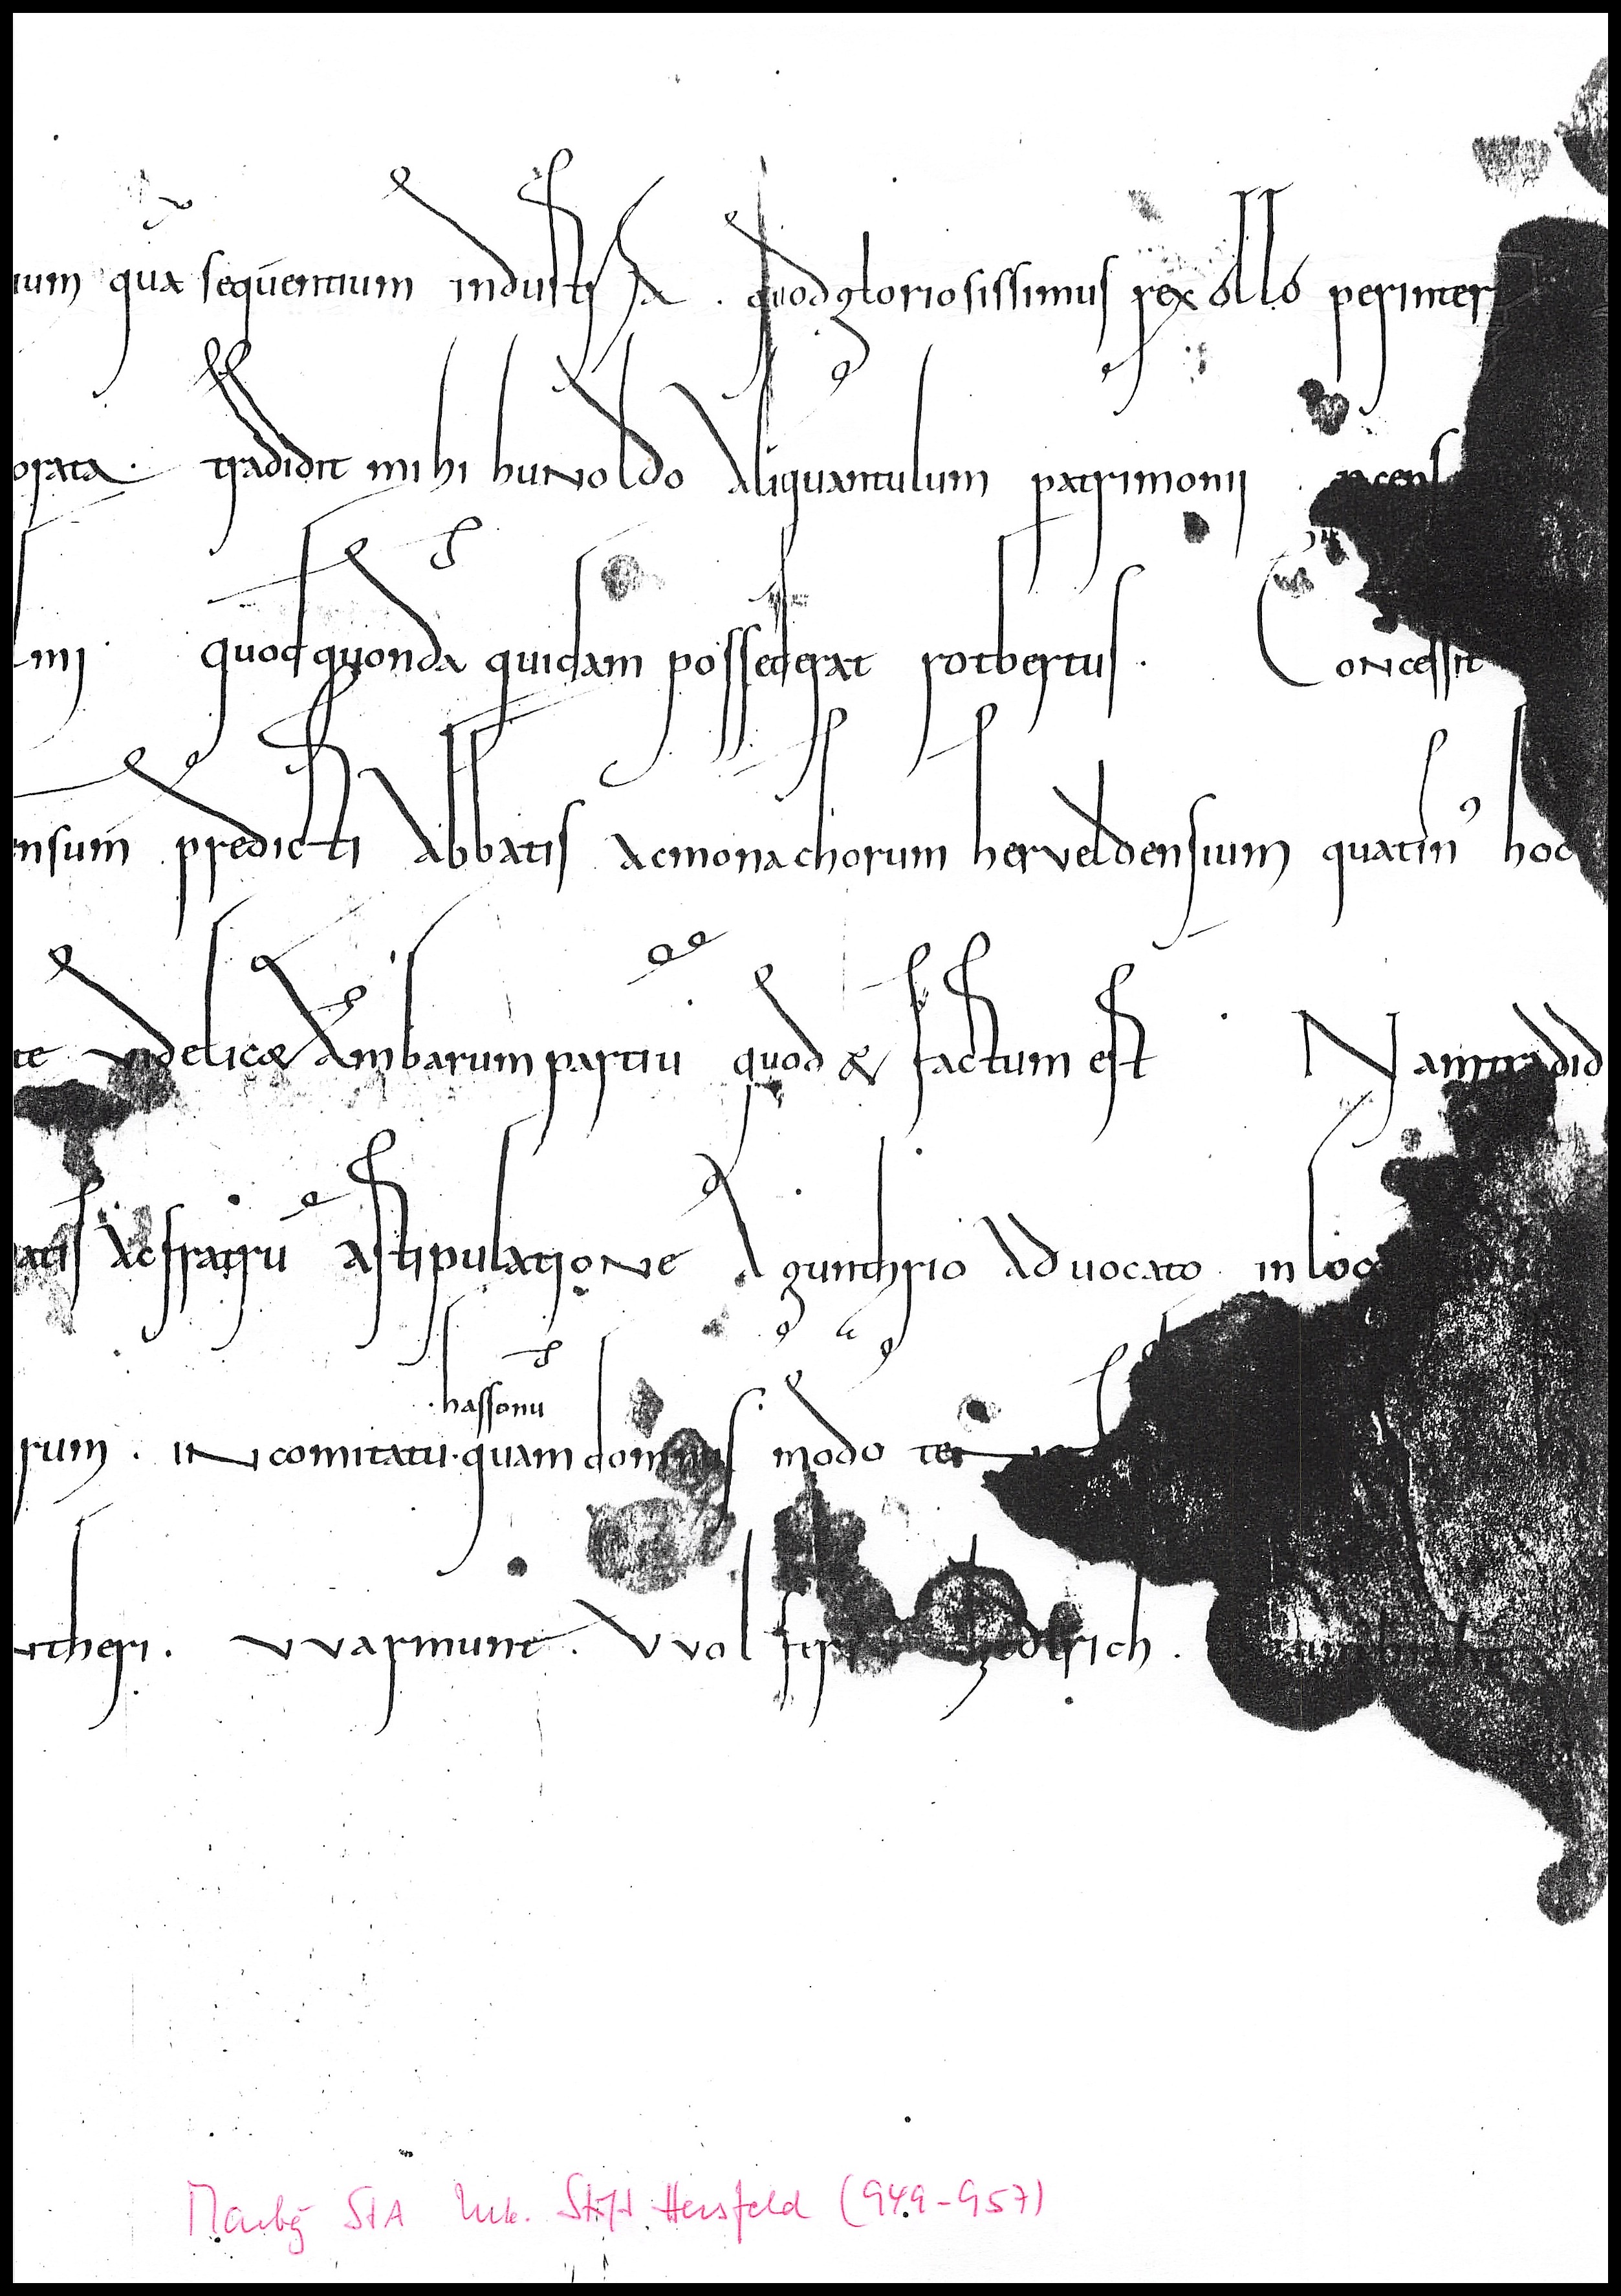 ium qua sequentium industria . quod gloriosissimus rex otto perinter
orata . tradidit mihi hunoldo aliquantulum patrimonii
mi quod quondā quidam possederat rotbertus . Concessit
ensum predicti abbatis ac monachorum herveldensium quatin' hoc
te videlicet ambarum partiū quod & factum est Nam tradid
atis ac fratrū astipulatione a gunthrio advocato in loc
hassonū
rum . in comitatu . quam modo ten
theri . vvarmunt . vvol
Marbg StA Urk. Stift Hersfeld (949-957)